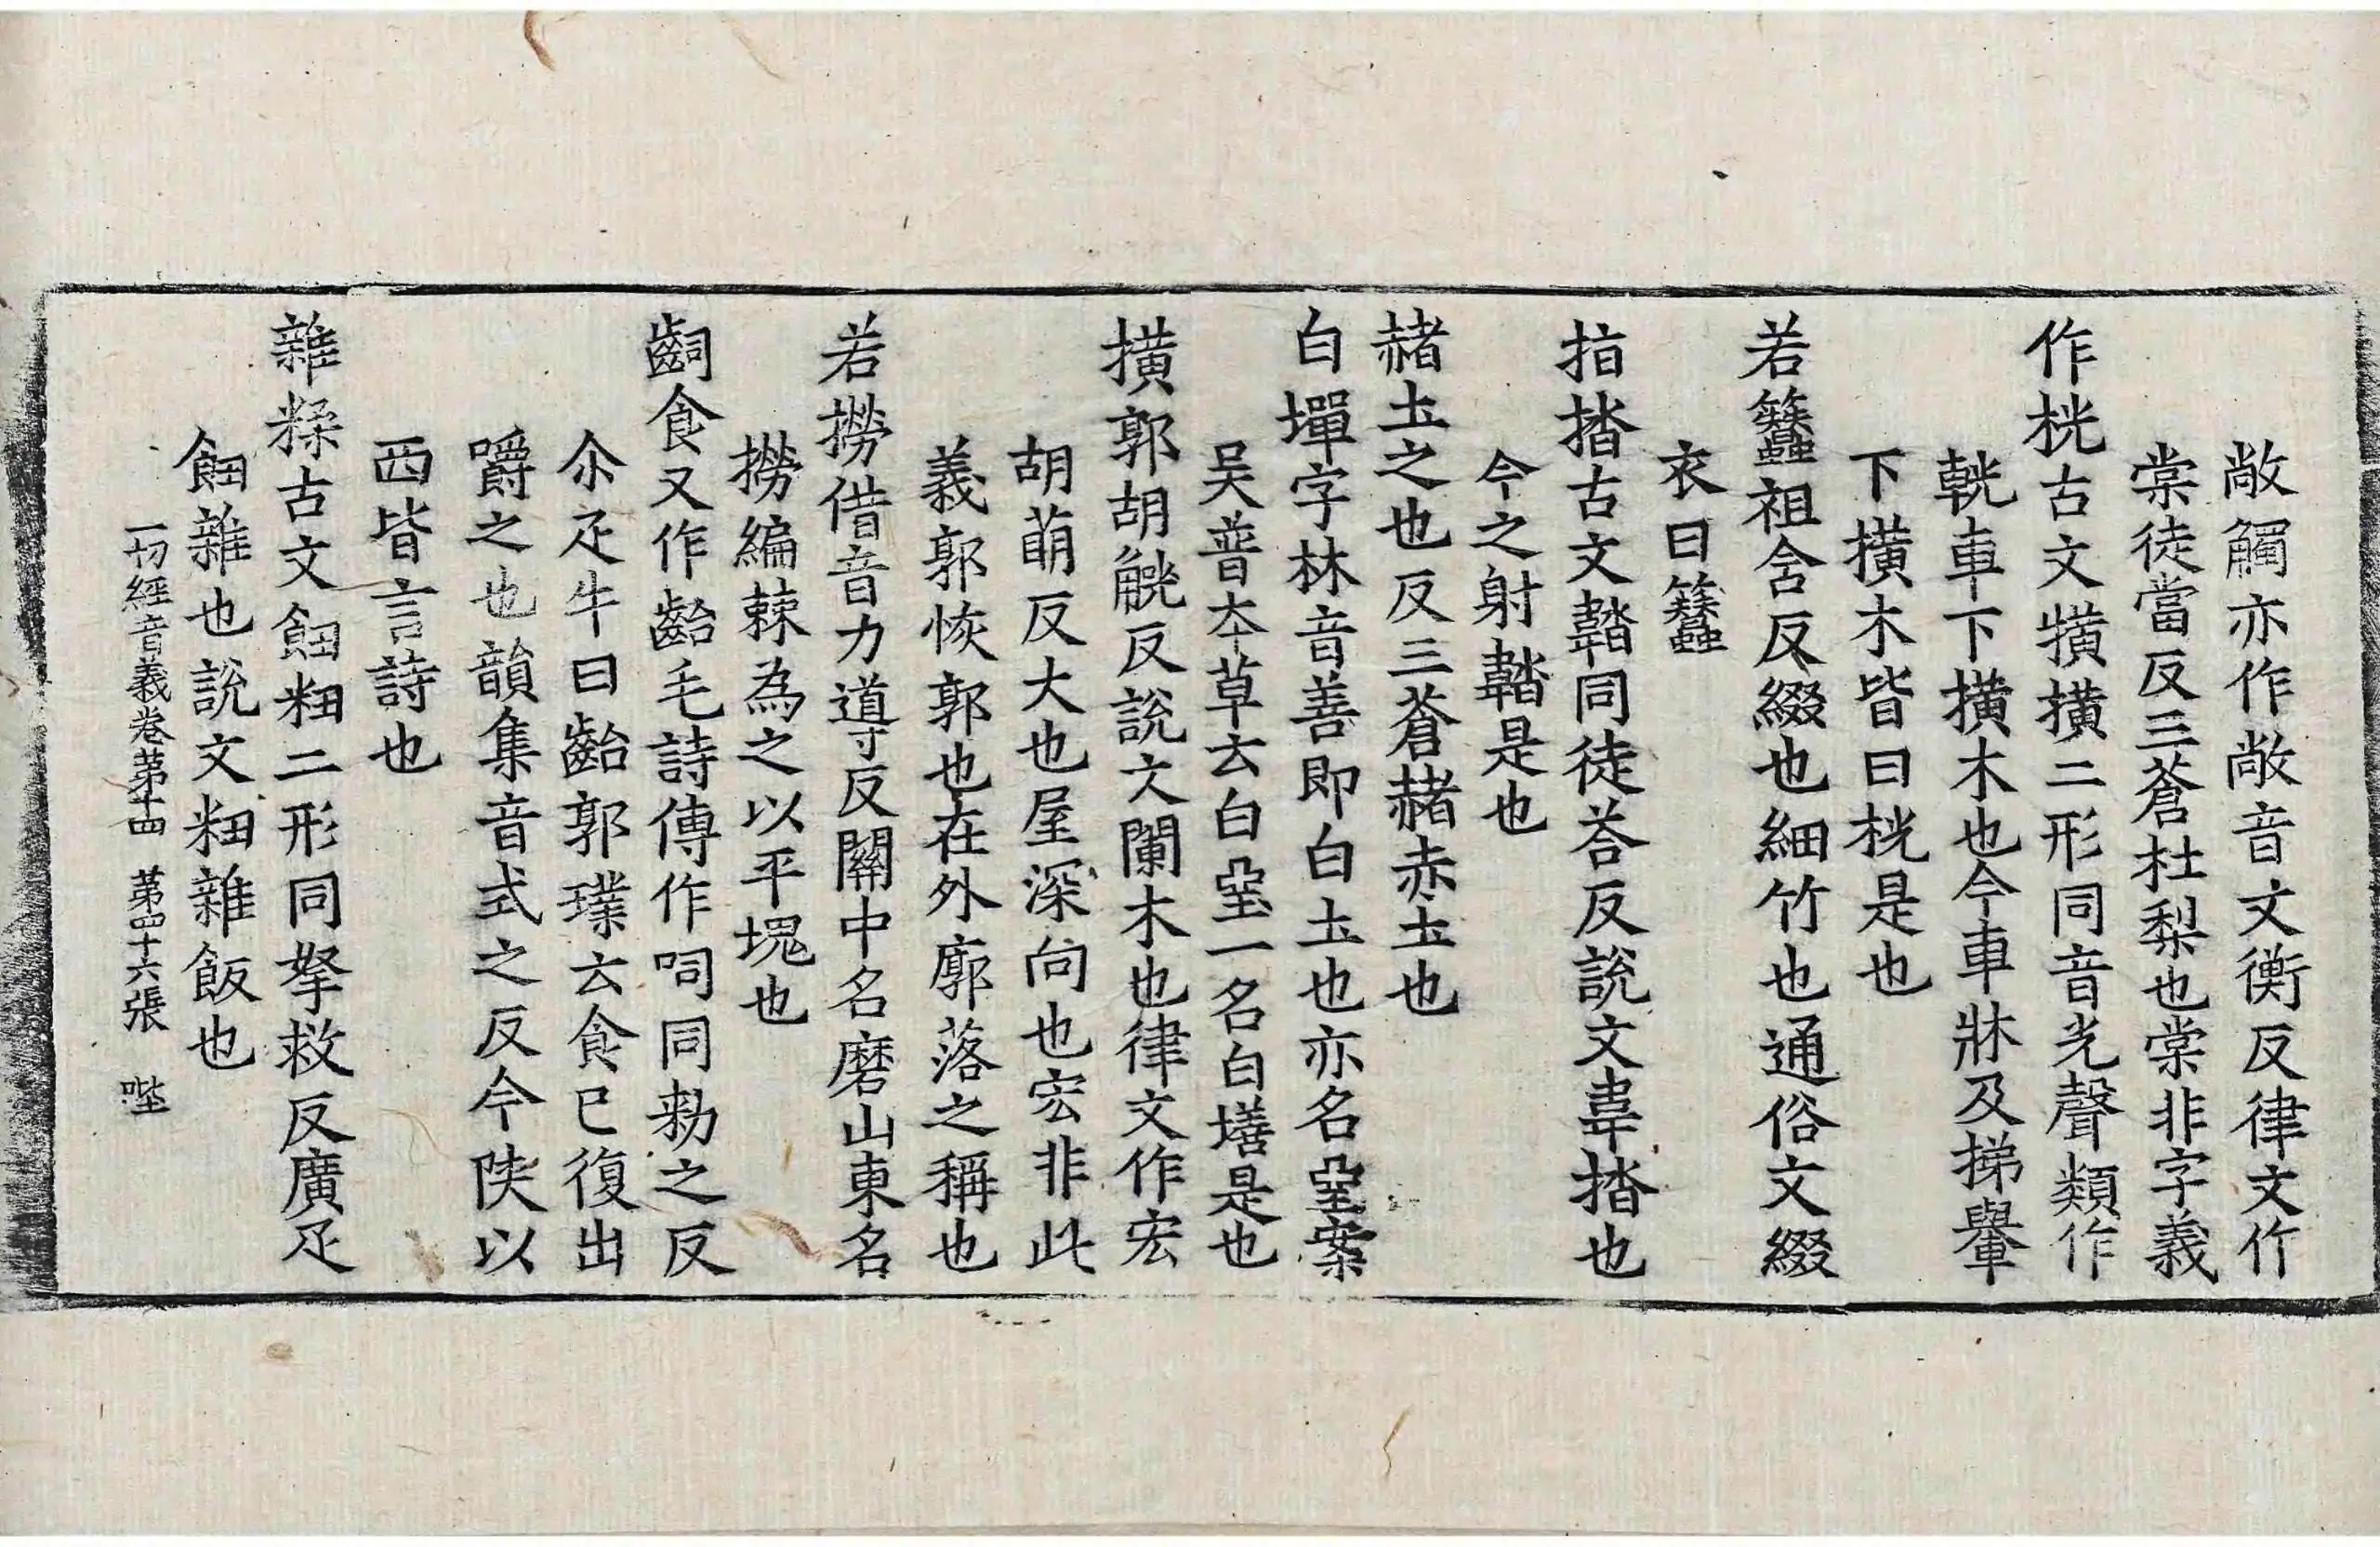 敞觸亦作敞音文衡反律文作
棠徒當反三蒼杜梨也棠非字義
作桄古文㯣橫二形同音光聲類作
輄車下橫木也今車牀及挮轝
下橫木皆曰桄是也
若簪祖含反綴也細竹也通俗文綴
衣曰簪
揩㧺古文韜同徒荅反說文韋㧺也
今之射韜是也
赭土之也反三蒼赭赤土也
白墠字林音善即白土也亦名堊案
吳普本草云白堊一名白墡是也
橫郭胡觥反說文闌木也律文作宏
胡萠反大也屋深向也宏非此
義郭恢郭也在外廓落之稱也
若撈借音力導反關中名磨山東名
撈編棘為之以平塊也
齝食又作齝毛詩傳作呞同勑之反
尒疋牛曰齝郭璞云食已復出
嚼之也韻集音式之反今陝以
西皆言詩也
雜糅古文䬦粈二形同拏救反廣疋
䬦雜也說文粈雜飯也
一切經音義卷第十四　第四十六張　㘸